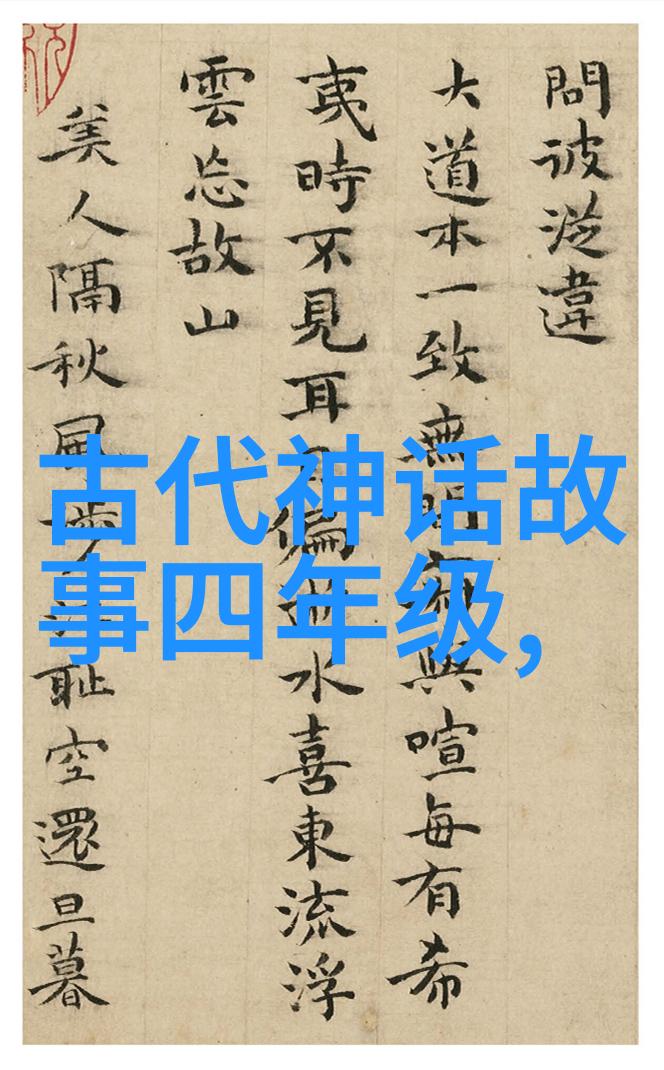 問彼從違
大道本一致無與喧每有希
夷時不見耳偏世水喜東流浮
雲忘故山
美人隔秋風恥空還旦暮
古代神话故
事四年级,